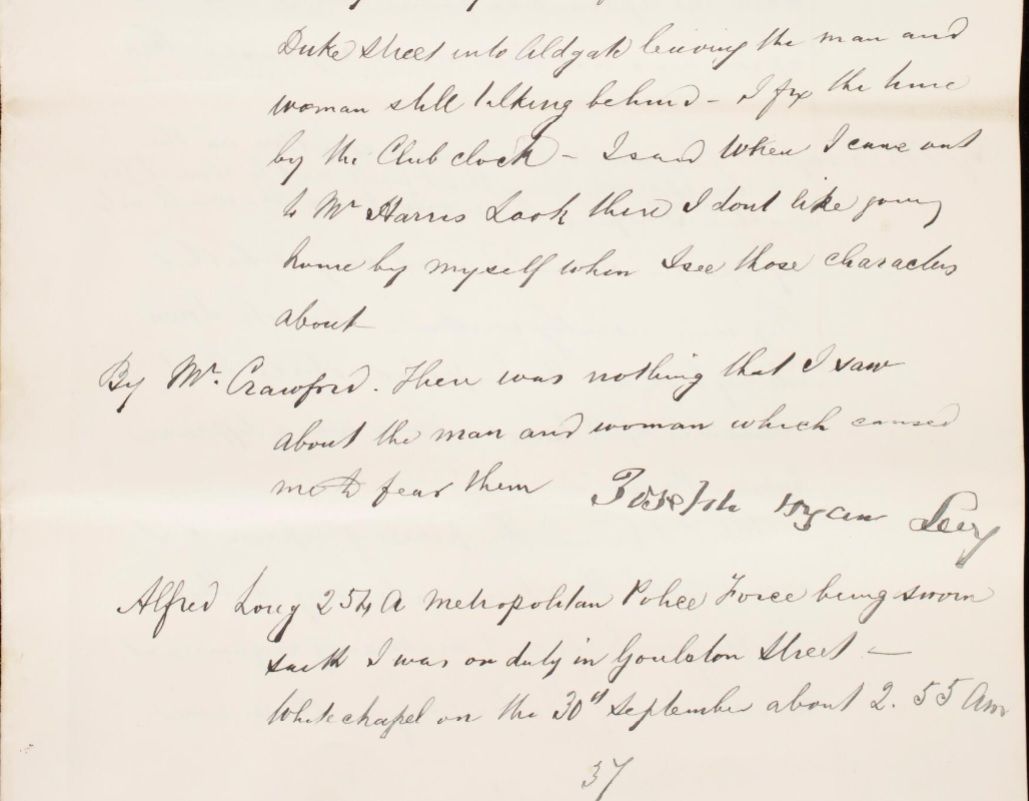 Duke Street into Aldgate leaving the man and
woman still talking behind - I fix the time
by the Club clock - I said when I came out
to Mr Harris Look there I dont like going
home by myself when I see those characters
about
By Mr. Crawford. There was nothing that I saw
about the man and woman which caused
me to fear them Joseph Hyam Levy
Alfred Long 254 A Metropolitan Police Force being sworn
saith I was on duty in Goulston Street -
Whitechapel on the 30th September about 2.55 Am
37